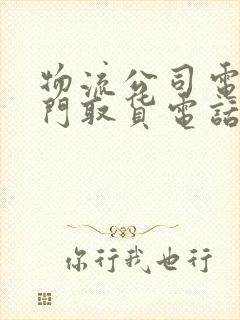 物流公司電
門取貨電話
你行我也行